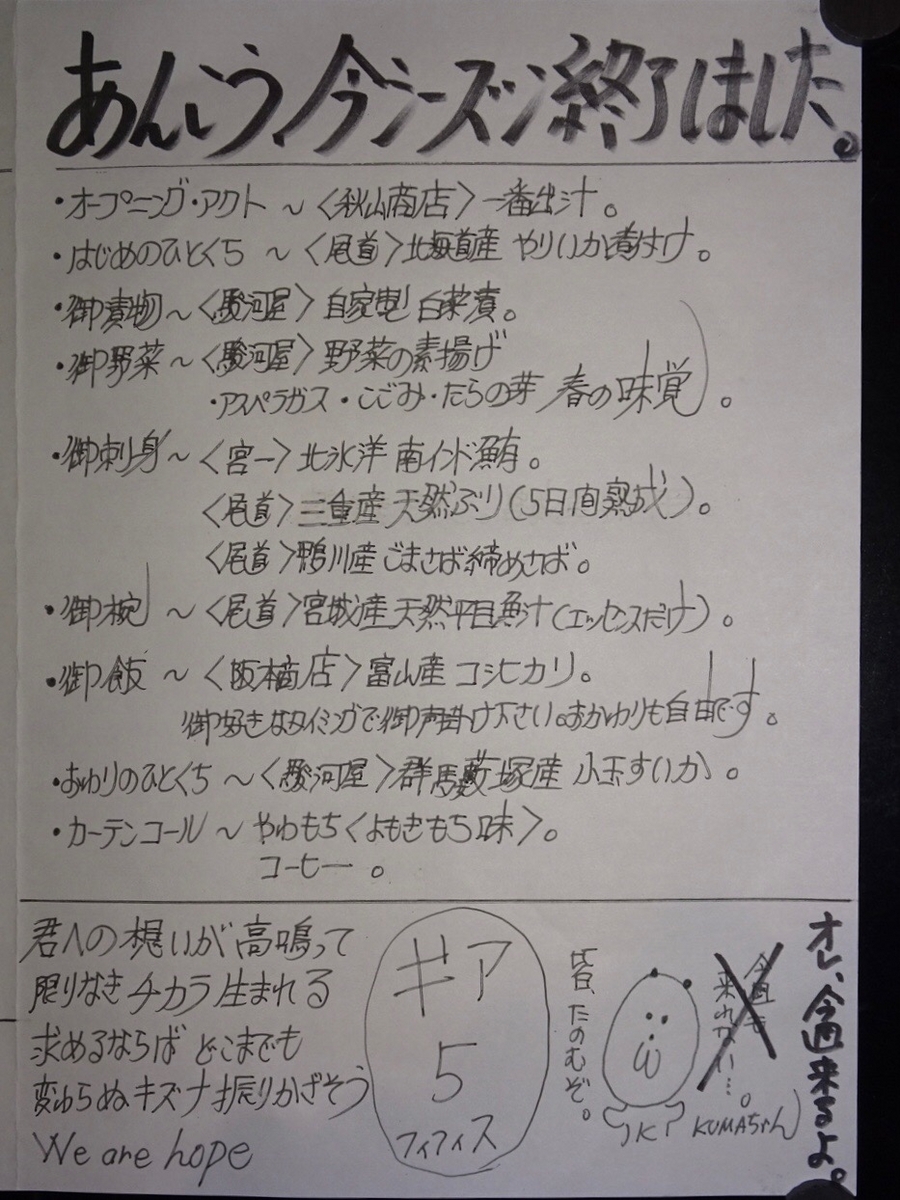 あんこう、今シーズン終了しました。
・オープニング・アクト ～〈秋山商店〉一番出汁。
・はじめのひとくち ～〈尾道〉北海道産 やりいか煮付け。
・御漬物～〈駿河屋〉自家製 白菜漬。
・御野菜～〈駿河屋〉野菜の素揚げ
・アスペラガス・こごみ・たらの芽 春の味覚。
・御刺身～〈宮一〉北氷洋 南インド鮪。
〈尾道〉三重産 天然ぶり(5日間熟成)。
〈尾道〉鴨川産 ごまさば締めさば。
・御椀 ～〈尾道〉宮城産 天然平目魚汁(エッセンスだけ)。
・御飯 ～〈阪本商店〉富山産 コシヒカリ。
御好きなタイミングで御声掛け下さい。おかわりも自由です。
・おわりのひとくち ～〈駿河屋〉群馬藪塚産 小玉すいか。
・カーテンコール ～ やわもち〈よもぎもち味〉。
コーヒー。
君への想いが高鳴って
限りなきチカラ生まれる
求めるならば どこまでも
変わらぬキズナ振りかざそう
We are hope
ギア
5
フィフィス
皆、たのむぞ。
KUMAちゃん
今週も
来れない…。
オレ、今週来るよ。